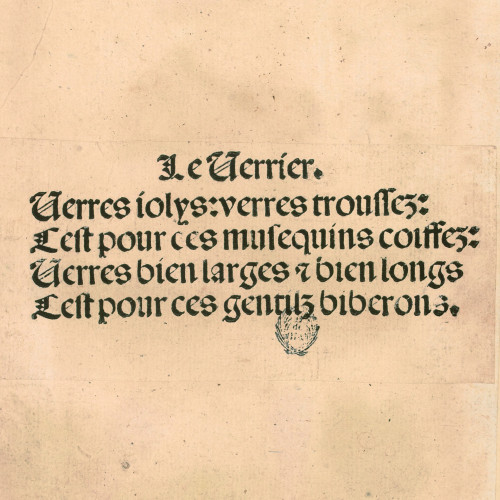 Le Verrier.
Verres iolys:verres troussez:
Cest pour ces musequins coiffez:
Verres bien larges ⁊ bien longs
Cest pour ces gentilz biberons.